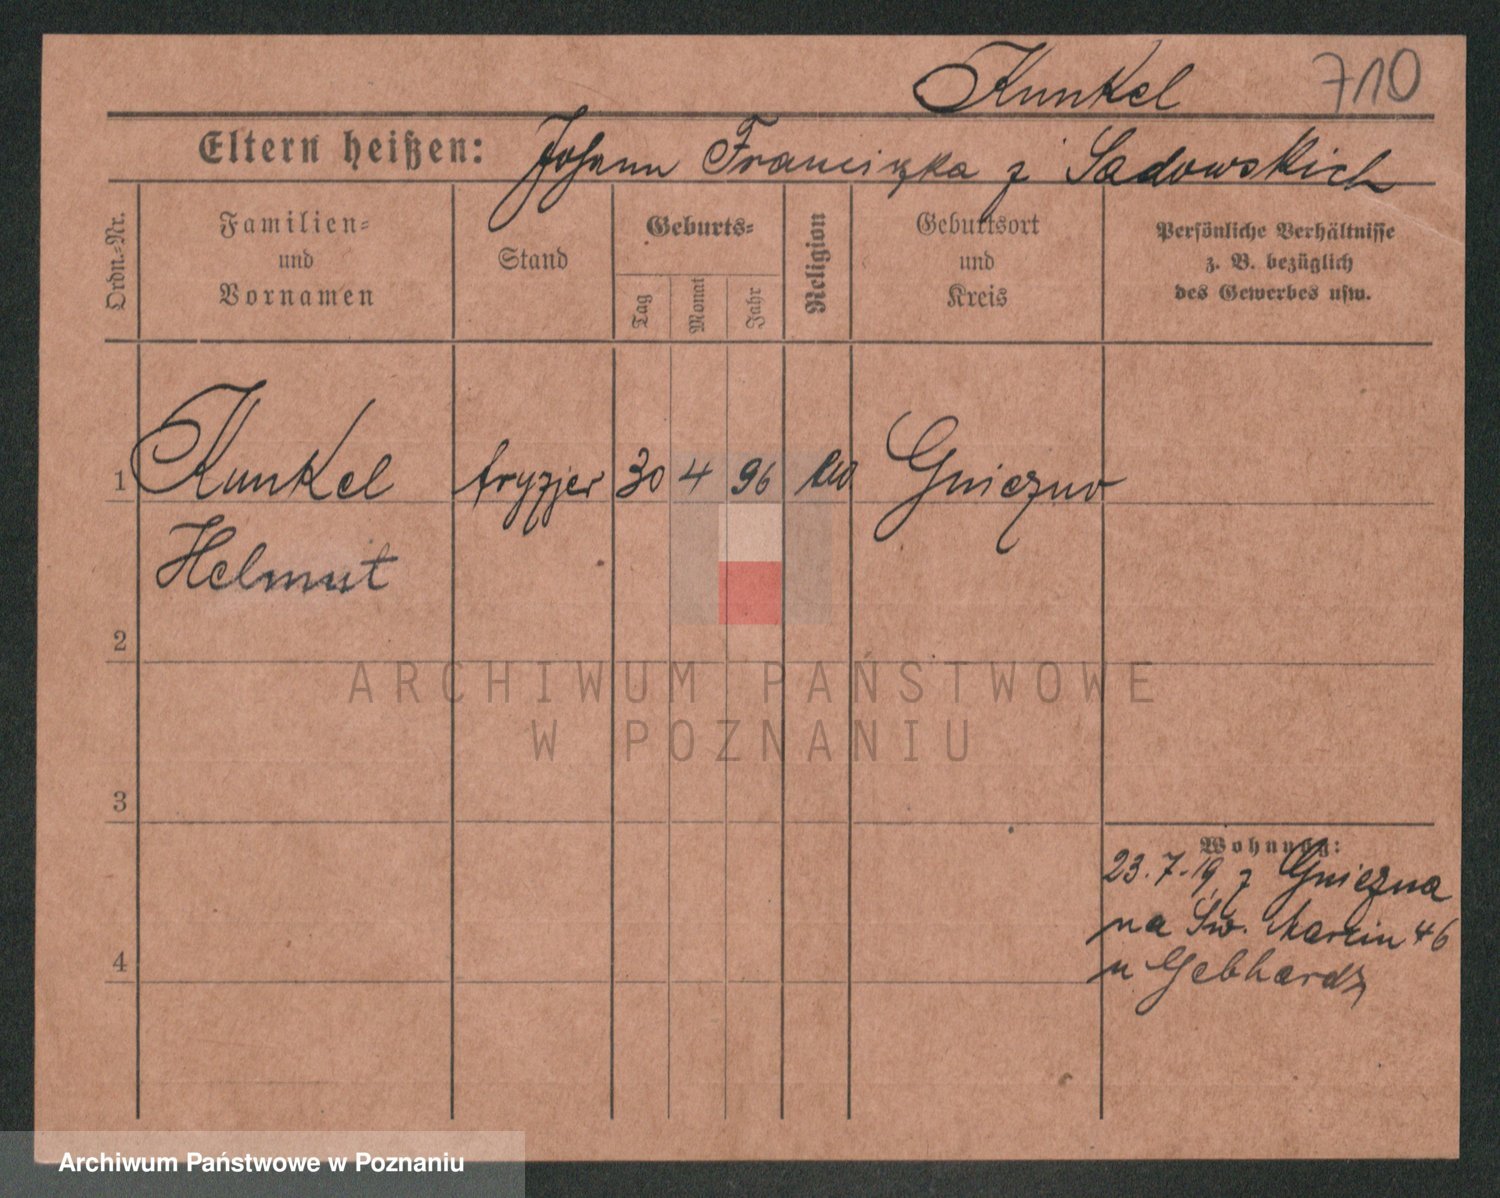 Kunkel 710
Eltern heißen: Johann Franciszka z Sadowskich
Ordn.-Nr.
Familien-
und
Vornamen
Stand
Geburts-
Tag
Monat
Jahr
Religion
Geburtsort
und
Kreis
Persönliche Verhältnisse
z. B. bezüglich
des Gewerbes usw.
1 Kunkel fryzjer 30 4 96 Gniezno
Helmut
2
3
4
Wohnung:
23.7.19 z Gniezna
na Św. Marcin 46
u Gebhardz
ARCHIWUM PAŃSTWOWE
W POZNANIU
Archiwum Państwowe w Poznaniu